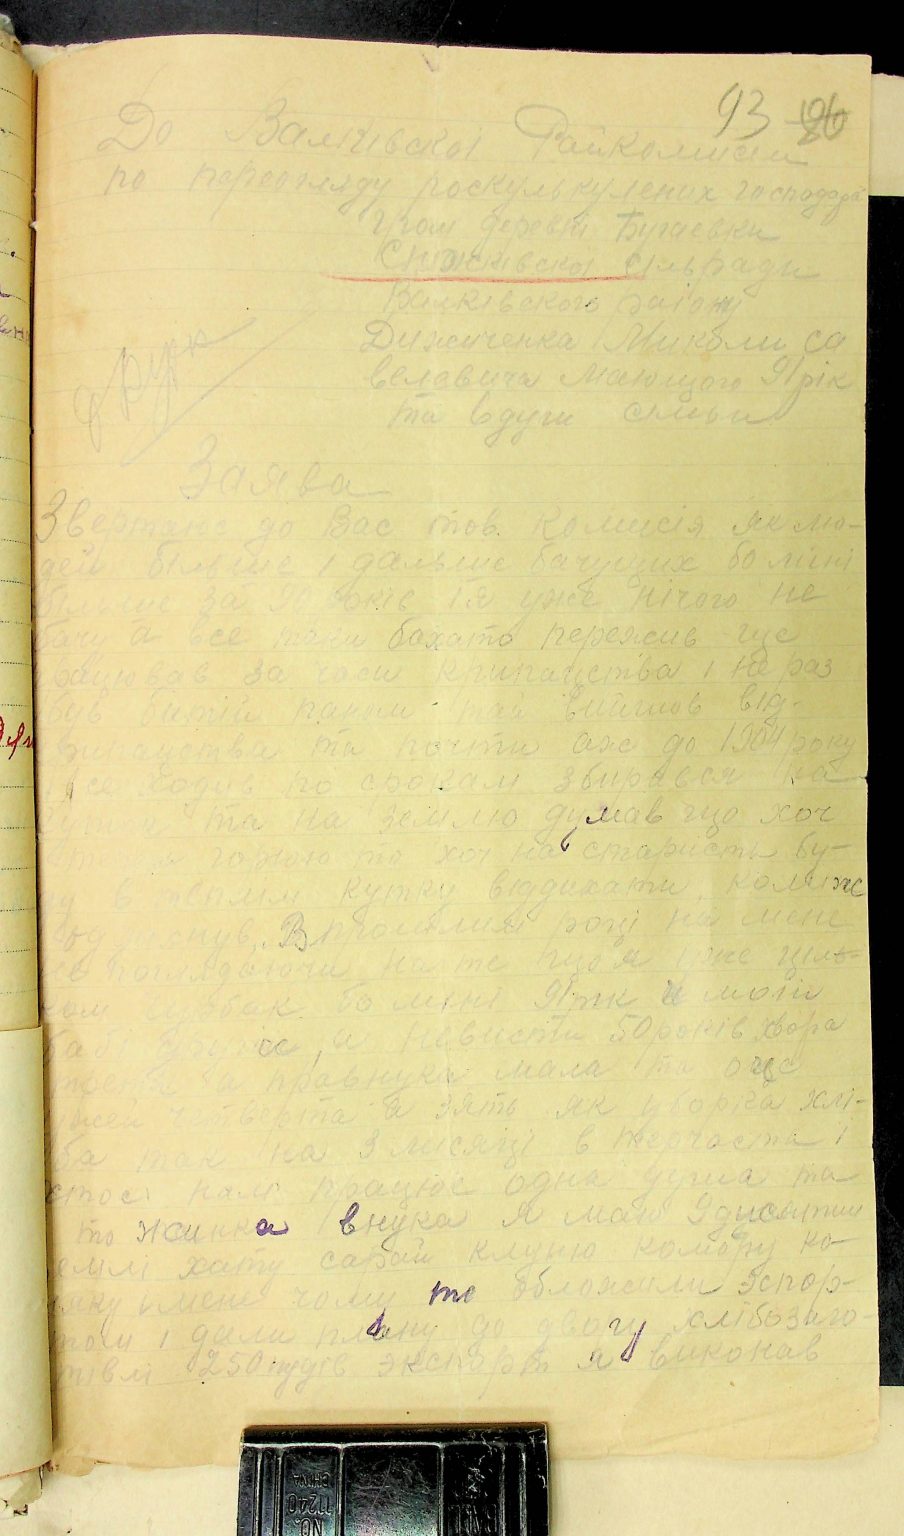 93 96
До Валківскої Райкомисии
по переогляду роскулькулених господарв
Гром деревні Бугаевки
Сніжківскої сільради
Валківского раіону
Дяжченка Миколи са
велавича мающого 91 рік
та вдуги сімьи
друк
Заява
Звертаюс до Вас тов. Комисія як лю-
дей більше і дальше бачущих бо міні
більше за 90 років і я уже нічого не
бачу а все таки бахато пережив ще
працював за часи крипацтва і не раз
був битий паном та я вийшов від
крипацтва та почти аж до 1904 року
все ходив по срокам збирався на
та на землю думав що хоч
горюю та хоч на старисть бу-
ду в теплим кутку віддихати, коли же
В прошлим році на мене
поглядаючи на те що я уже ціль-
ком чурбак бо міні 91 рік и моїй
бабі а невисти 50 років хвора
а правнука мала та още
четверта а зять як уборка хлі-
ба так на 3 місяці в терчасти і
нам працює одна душа та
то жинка внука я маю 9 дисятин
землі хату сарай клуню комору ко-
няку мене чому те обложили экспор-
том і дали плану до двору хлібозаго-
тівлі 250 пудів экспорт я виконав